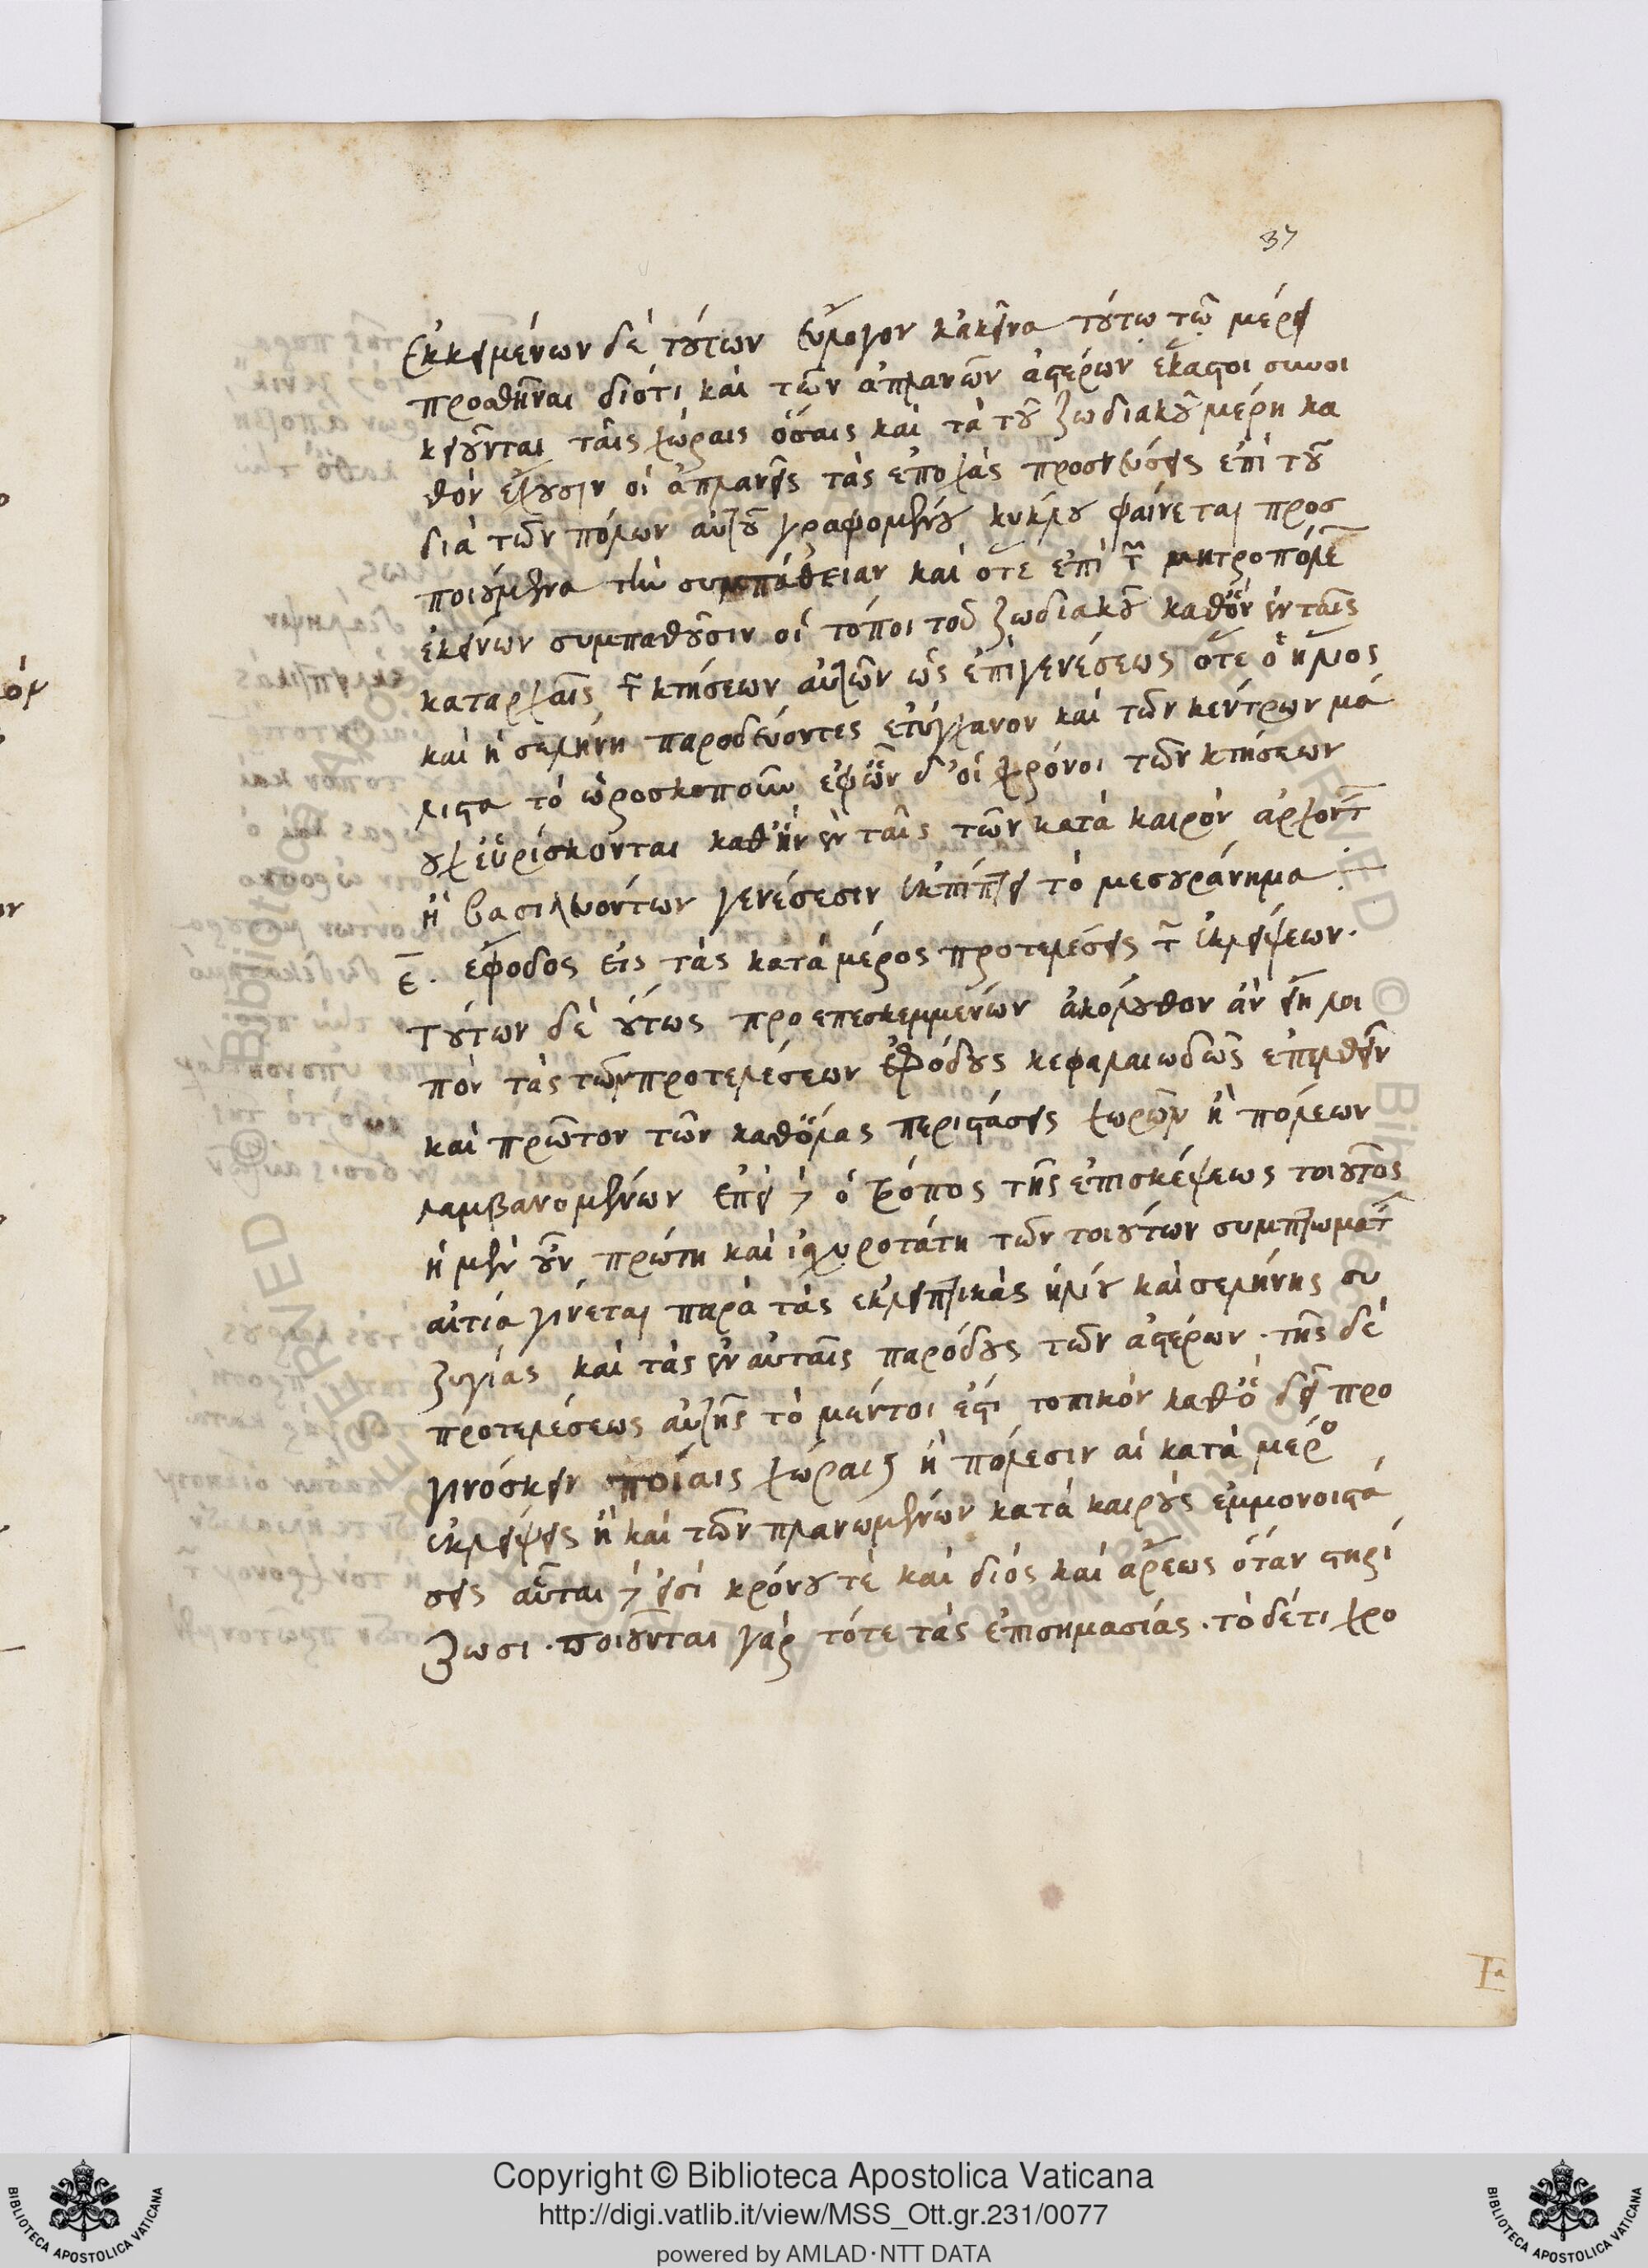 37
Ἐκκειμένων δὲ τούτων εὔλογον κἀκεῖνα τούτῳ τῷ μέρει
προσθῆναι διότι καὶ τῶν ἀπλανῶν ἀστέρων ἕκαστοι συνοι
κειοῦνται ταῖς χώραις ὅσαις καὶ τὰ τοῦ ζωδιακοῦ μέρη κα
θὸν ἔχουσιν οἱ ἀπλανεῖς τὰς ἐποχὰς προσνεύσεις ἐπὶ τοῦ
διὰ τῶν πόλων αὐτοῦ γραφομένου κύκλου φαίνεται προσ
ποιούμενα τὴν συμπάθειαν καὶ ὅτε ἐπὶ τῶν μητροπόλεων
ἐκείνων συμπαθοῦσιν οἱ τόποι τοῦ ζωδιακοῦ καθὃν ἐν ταῖς
καταρχαῖς τῶν κτήσεων αὐτῶν ὡς ἐπὶ γενέσεως ὅτε ὁ ἥλιος
καὶ ἡ σελήνη παροδεύοντες ἐτύγχανον καὶ τῶν κέντρων μά
λιστα τὸ ὡροσκοποῦν ἐφὧν δ' οἱ χρόνοι τῶν κτήσεων
οὐχ εὑρίσκονται καθἣν ἐν ταῖς τῶν κατὰ καιρὸν ἀρχόντων
ἢ βασιλευόντων γενέσεσιν ἐκπίπτει τὸ μεσουράνημα
ε. ἔφοδος εἰς τὰς κατὰ μέρος προτελέσεις τῶν ἐκλείψεων.
Τούτων δὲ οὕτως προεπεσκεμμένων ἀκόλουθον ἂν εἴη λοι
πὸν τὰς τῶν προτελέσεων ἐφόδους κεφαλαιωδῶς ἐπελθεῖν
καὶ πρῶτον τῶν καθὅλας περιστάσεις χωρῶν ἢ πόλεων
λαμβανομένων ἔπει δὲ ὁ τρόπος τῆς ἐπισκέψεως τοιοῦτος
ἡ μὲν οὖν πρώτη καὶ ἰσχυροτάτη τῶν τοιούτων συμπτωμάτων
αἰτία γίνεται παρὰ τὰς ἐκλειπτικὰς ἡλίου καὶ σελήνης συ
ζυγίας καὶ τὰς ἐν αὐταῖς παρόδους τῶν ἀστέρων. τῆς δὲ
προτελέσεως αὐτῆς τὸ μέντοι ἐστὶ τοπικὸν καθὃ δεῖ προ
γινόσκειν ποίαις χώραις ἢ πόλεσιν αἱ κατὰ μέρος
ἐκλείψεις ἢ καὶ τῶν πλανωμένων κατὰ καιροὺς ἐμμονοιστά
σεις αὗται δὲ εἰσὶ κρόνου τὲ καὶ διὸς καὶ ἄρεως ὅταν στηρί
ζωσι. ποιοῦνται γὰρ τότε τὰς ἐπισημασίας. τὸ δέ τι χρο
Copyright © Biblioteca Apostolica Vaticana
http://digi.vatlib.it/view/MSS_Ott.gr.231/0077
powered by AMLAD·NTT DATA